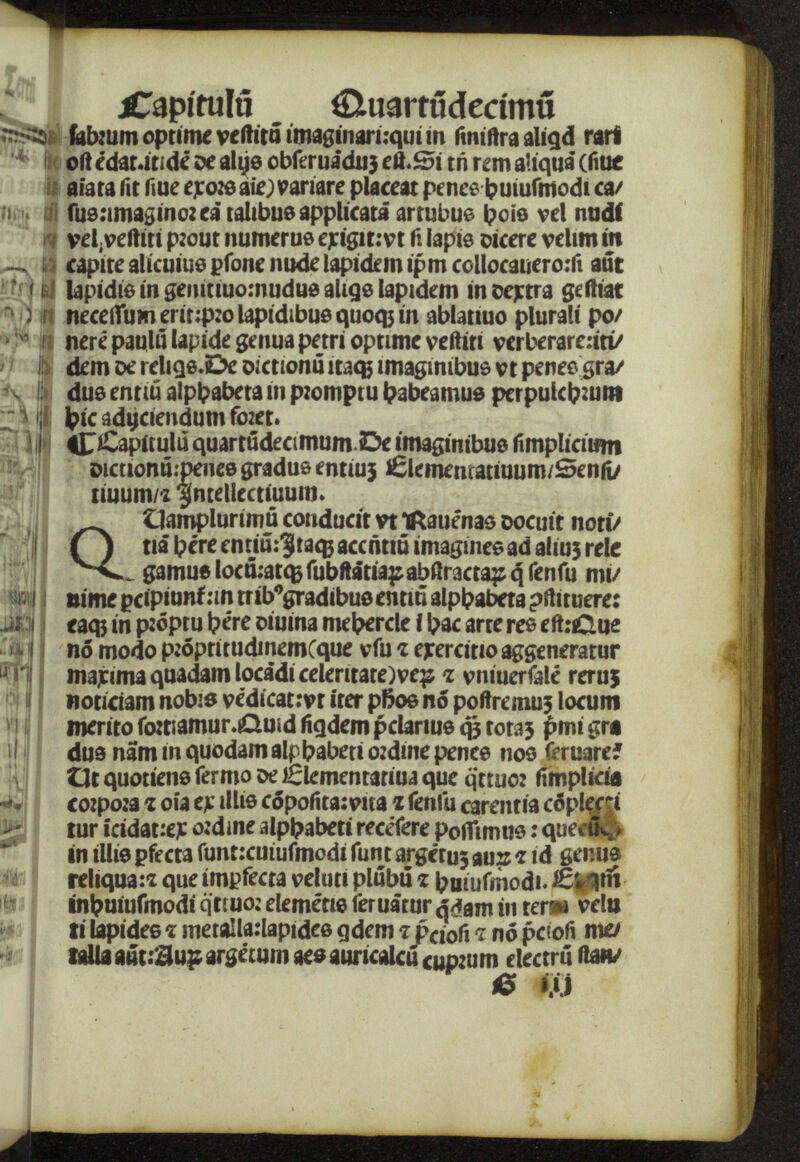 Capitulū Quartūdecimū
fabrum optime vestitū imaginari:qui in sinistra aliqd rari
ostēdat.itidē de alijs obseruādu3 est.Si tn̄ rem aliquā (siue
aīata sit siue exors aīe) variare placeat penes huiusmodi ca/
sus:imaginor eā talibus applicatā artubus hoīs vel nudi
vel,vestiti prout numerus exigit:vt si lapis dicere velim in
capite alicuius psone nude lapidem ip̄m collocauero:si aūt
lapidis in genitiuo:nudus aliqs lapidem in dextra gestiat
necessum erit:pro lapidibus quoq3 in ablatiuo plurali po/
nerē paulū lapide genua petri optime vestiti verberare:iti/
dem de reliqs.De dictionū itaq3 imaginibus vt penes gra/
dus entiū alphabeta in promptu habeamus perpulchrum
hic adijciendum foret.
¶Capitulū quartūdecimum.De imaginibus simplicium
dictionū:penes gradus entiu3 Elementatiuum/Sensi/
tiuum/⁊ Intellectiuum.
QUamplurimū conducit vt Rauēnas docuit noti/
tiā hēre entiū:Itaq3 accn̄tiū imagines ad aliu3 rele
gamus locū:atq3 substātiaꝝ abstractaꝝ q̄ sensu mi/
nime pcipiunt̄:in trib⁹ gradibus entiū alphabeta ɔstituere:
eaq3 in prōptu hēre diuina mehercle ī hac arte res est:Que
nō modo prōptitudinem(que vsu ⁊ exercitio aggeneratur
maxima quadam locādi celeritate)veꝝ ⁊ vniuersalē reru3
noticiam nobis vēdicat:vt iter ph̄os nō postremu3 locum
merito fortiamur.Quid siqdem p̄clarius q̄3 tota3 p̄mi gra
dus nām in quodam alphabeti ordine penes nos seruare?
Ut quotiens sermo de Elementatiua que q̄ttuor simplicia
corpora ⁊ oīa ex illis cōposita:vita ⁊ sensu carentia cōplecti
tur īcidat:ex ordine alphabeti recēsere possimus : quecūq3
in illis pfecta sunt:cuiusmodi sunt argētu3 auꝝ ⁊ id genus
reliqua:⁊ que impfecta veluti plūbū ⁊ huiusmodi. Etenim
inhuiusmodi q̄ttuor elemētis seruātur q̄dam in terra velu
ti lapides ⁊ metalla:lapides qdem ⁊ p̄ciosi ⁊ nō p̄ciosi me/
talla aūt:Auꝝ argētum aes auricalcū cuprum electrū stan/
G iij